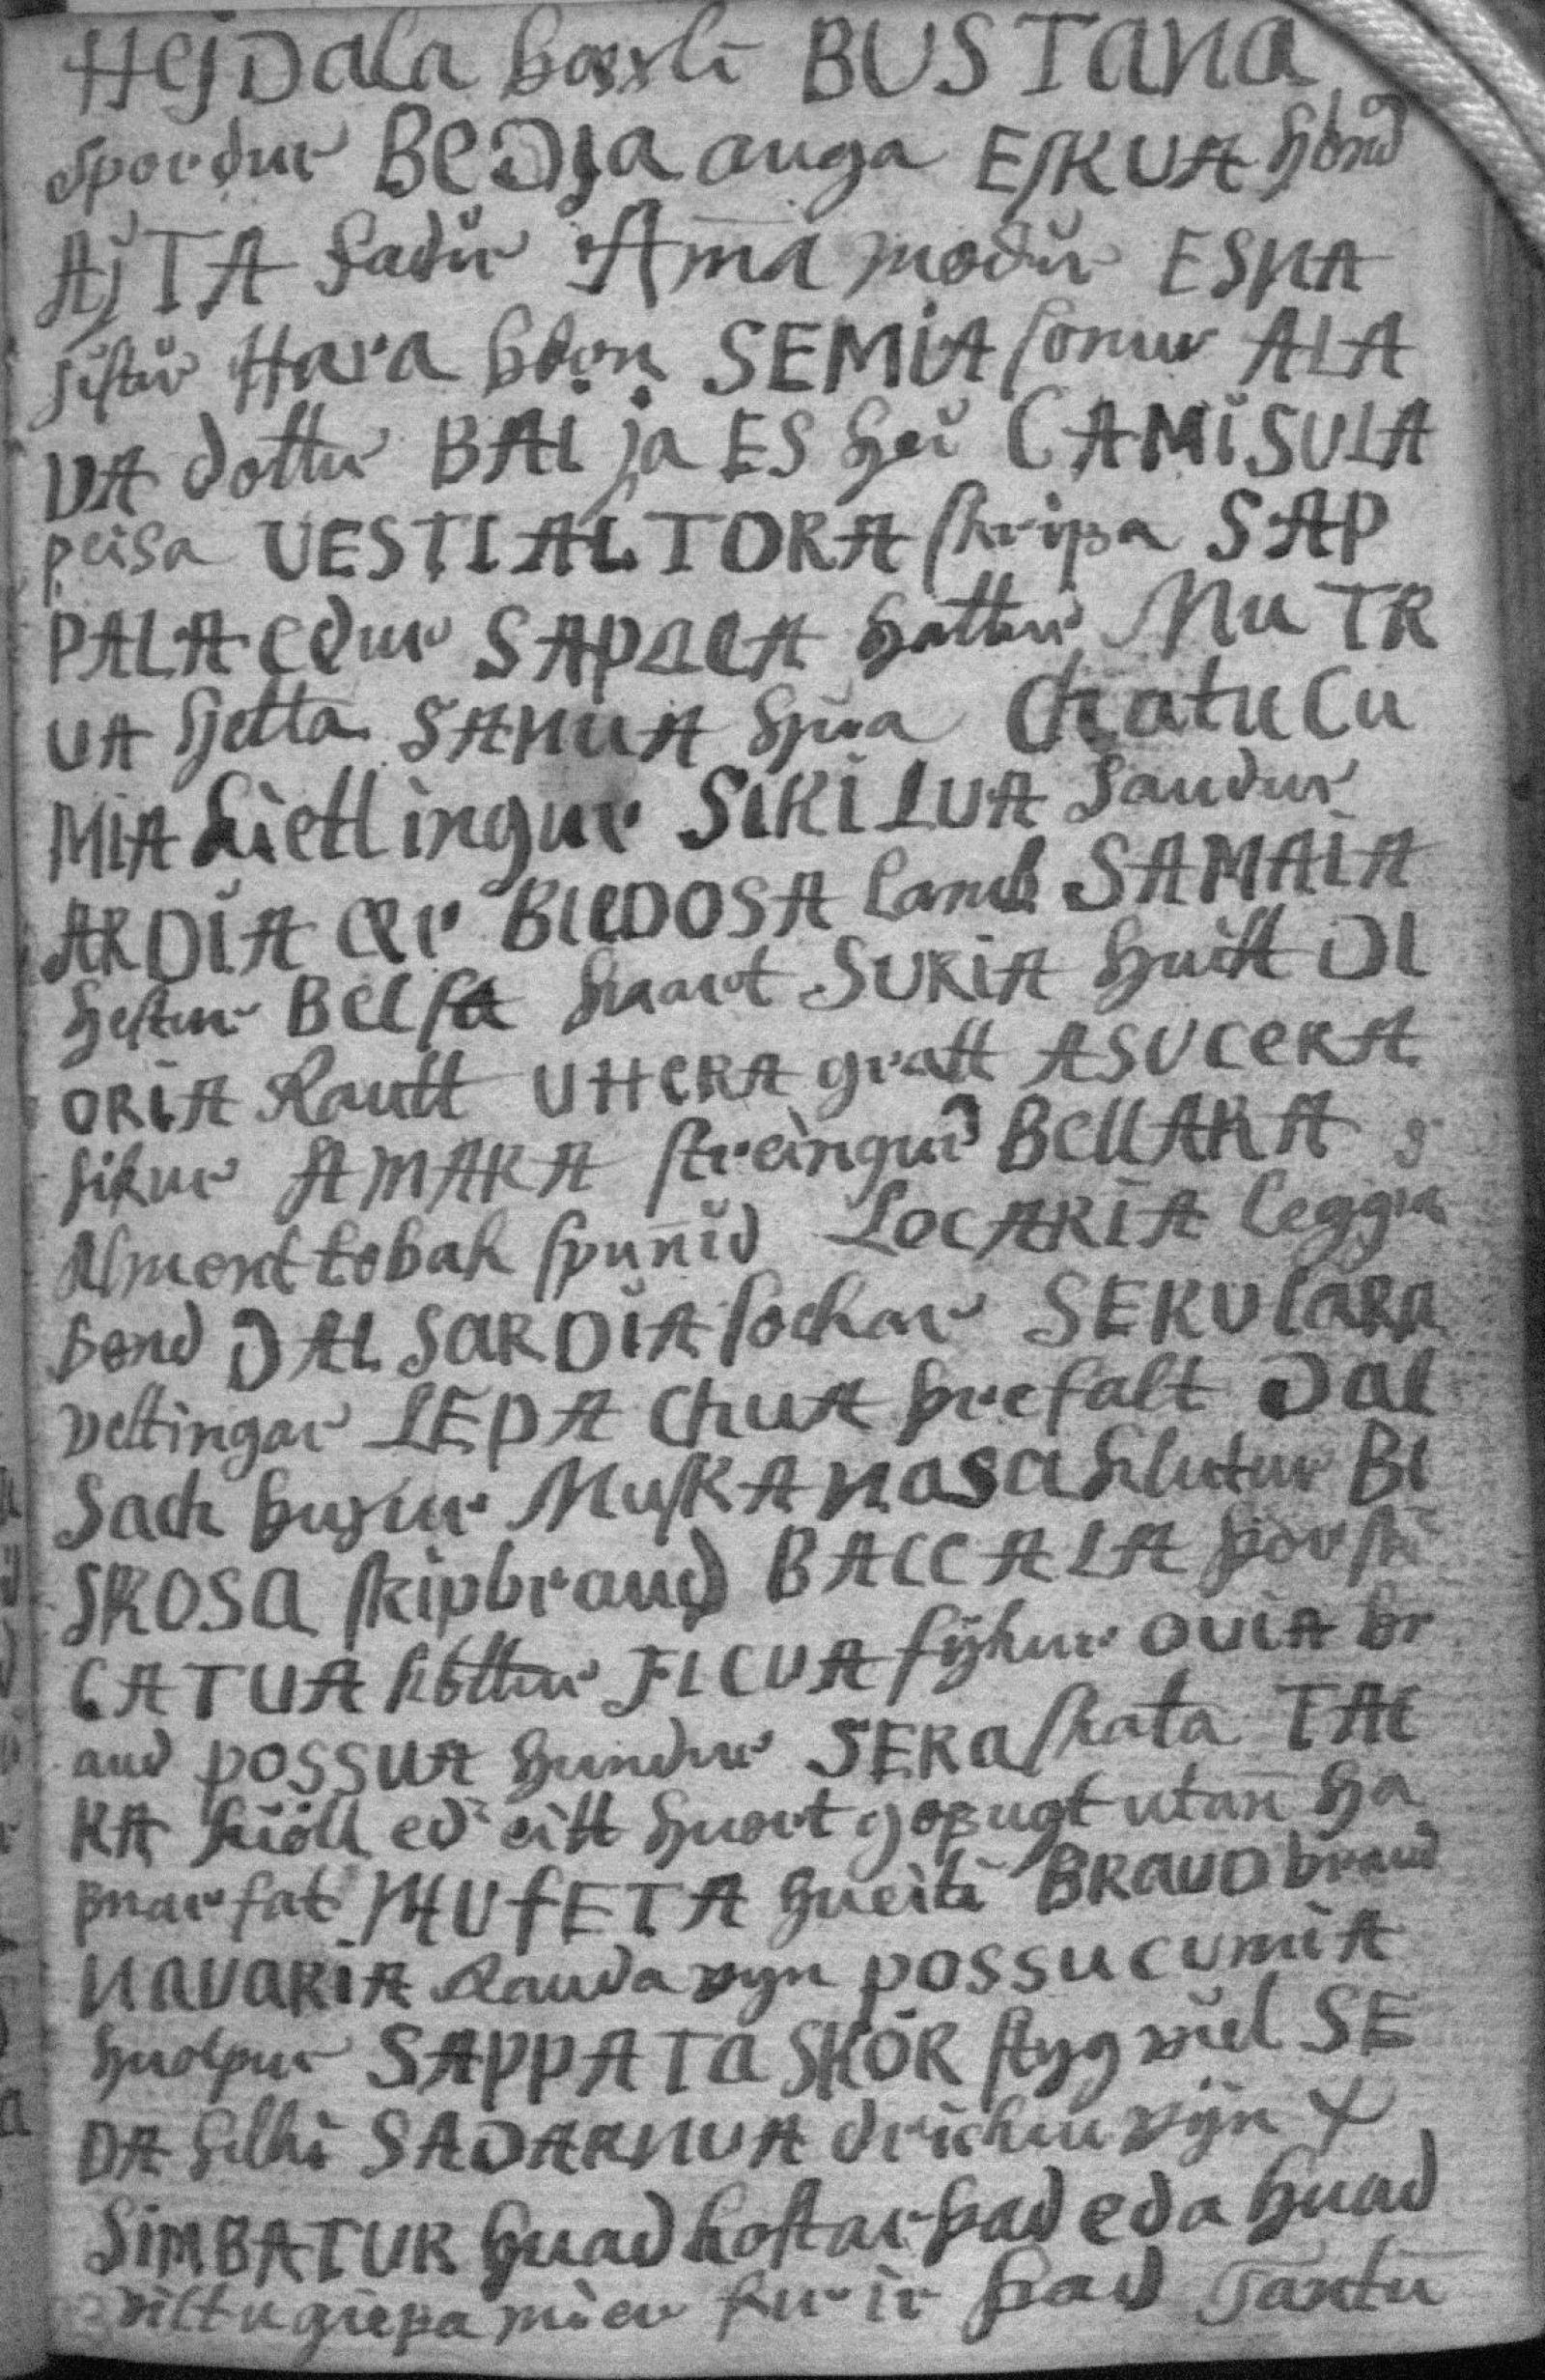 HejDala barsli BUSTana
spordur BeDja auga ESKUA hônd
AjTA fadŭr Am̄a modŭr ESNA
sistŭr Hara bôrn SEMIA sonur ALA
VA dottur BAI ja ES nei CAMISULA
peisa UESTIALTORA skripa SAP
PALA edur SAPALA hattur Mu TR
UA hetta SANUA hŭa ChatuCu
MIA kietlingur SIKILUA saudur
ARDIA ær BILDOSA lamb SAMAIA
hestur BElsa suart SURIA huitt DI
ORIA Rautt UHERA gratt ASUCERA
sikur AMARA streingur BELLARA
Alment tobak spun̄id LOCARIA leggia
bond DAL SARDIA sockar SEKULARA
vettingar LEPA ChUA trefalt Dal
Sach buxur MusKANasa klutur BI
SKOSA skipbraud BACCALA þorsk
CATUA kôttur FICUA fijkur OUIA br
aud POSSUA hundur SERA skata TAC
KA kiöll ed eitt huort gopugt utan̄ ha
pnar fat MUfETA hueiti BRAUD braud
NAUARIA Rauda vyn POSSUCUMIA
huolpur SAPPATA SKÖR styguiel SE
DA silki SADARNUA drickur vijn X
SIMBATUR huad kostar þad eda huad
viltu giepa mier firir þad Tantu